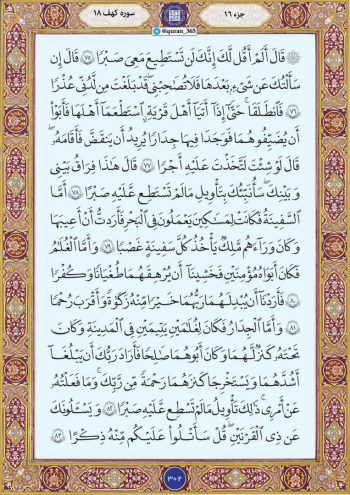 جزء ١٦
@quran_365
سوره کهف ١٨
قَالَ أَلَمْ أَقُل لَّكَ إِنَّكَ لَن تَسْتَطِيعَ مَعِيَ صَبْرًا ٧٥ قَالَ إِن
سَأَلْتُكَ عَن شَيْءٍ بَعْدَهَا فَلَا تُصَاحِبْنِي قَدْ بَلَغْتَ مِن لَّدُنِّي عُذْرًا
٧٦ فَانطَلَقَا حَتَّىٰ إِذَا أَتَيَا أَهْلَ قَرْيَةٍ اسْتَطْعَمَا أَهْلَهَا فَأَبَوْا
أَن يُضَيِّفُوهُمَا فَوَجَدَا فِيهَا جِدَارًا يُرِيدُ أَن يَنقَضَّ فَأَقَامَهُ
قَالَ لَوْ شِئْتَ لَتَّخَذْتَ عَلَيْهِ أَجْرًا ٧٧ قَالَ هَٰذَا فِرَاقُ بَيْنِي
وَبَيْنِكَ سَأُنَبِّئُكَ بِتَأْوِيلِ مَا لَمْ تَسْتَطِع عَّلَيْهِ صَبْرًا ٧٨ أَمَّا
السَّفِينَةُ فَكَانَتْ لِمَسَاكِينَ يَعْمَلُونَ فِي الْبَحْرِ فَأَرَدتُّ أَنْ أَعِيبَهَا
وَكَانَ وَرَاءَهُم مَّلِكٌ يَأْخُذُ كُلَّ سَفِينَةٍ غَصْبًا ٧٩ وَأَمَّا الْغُلَامُ
فَكَانَ أَبَوَاهُ مُؤْمِنَيْنِ فَخَشِينَا أَن يُرْهِقَهُمَا طُغْيَانًا وَكُفْرًا
٨٠ فَأَرَدْنَا أَن يُبْدِلَهُمَا رَبُّهُمَا خَيْرًا مِّنْهُ زَكَوٰةً وَأَقْرَبَ رُحْمًا
٨١ وَأَمَّا الْجِدَارُ فَكَانَ لِغُلَامَيْنِ يَتِيمَيْنِ فِي الْمَدِينَةِ وَكَانَ
تَحْتَهُ كَنزٌ لَّهُمَا وَكَانَ أَبُوهُمَا صَالِحًا فَأَرَادَ رَبُّكَ أَن يَبْلُغَا
أَشُدَّهُمَا وَيَسْتَخْرِجَا كَنزَهُمَا رَحْمَةً مِّن رَّبِّكَ وَمَا فَعَلْتُهُ
عَنْ أَمْرِي ذَٰلِكَ تَأْوِيلُ مَا لَمْ تَسْطِع عَّلَيْهِ صَبْرًا ٨٢ وَيَسْأَلُونَكَ
عَن ذِي الْقَرْنَيْنِ قُلْ سَأَتْلُوا عَلَيْكُم مِّنْهُ ذِكْرًا ٨٣
٣٠٢